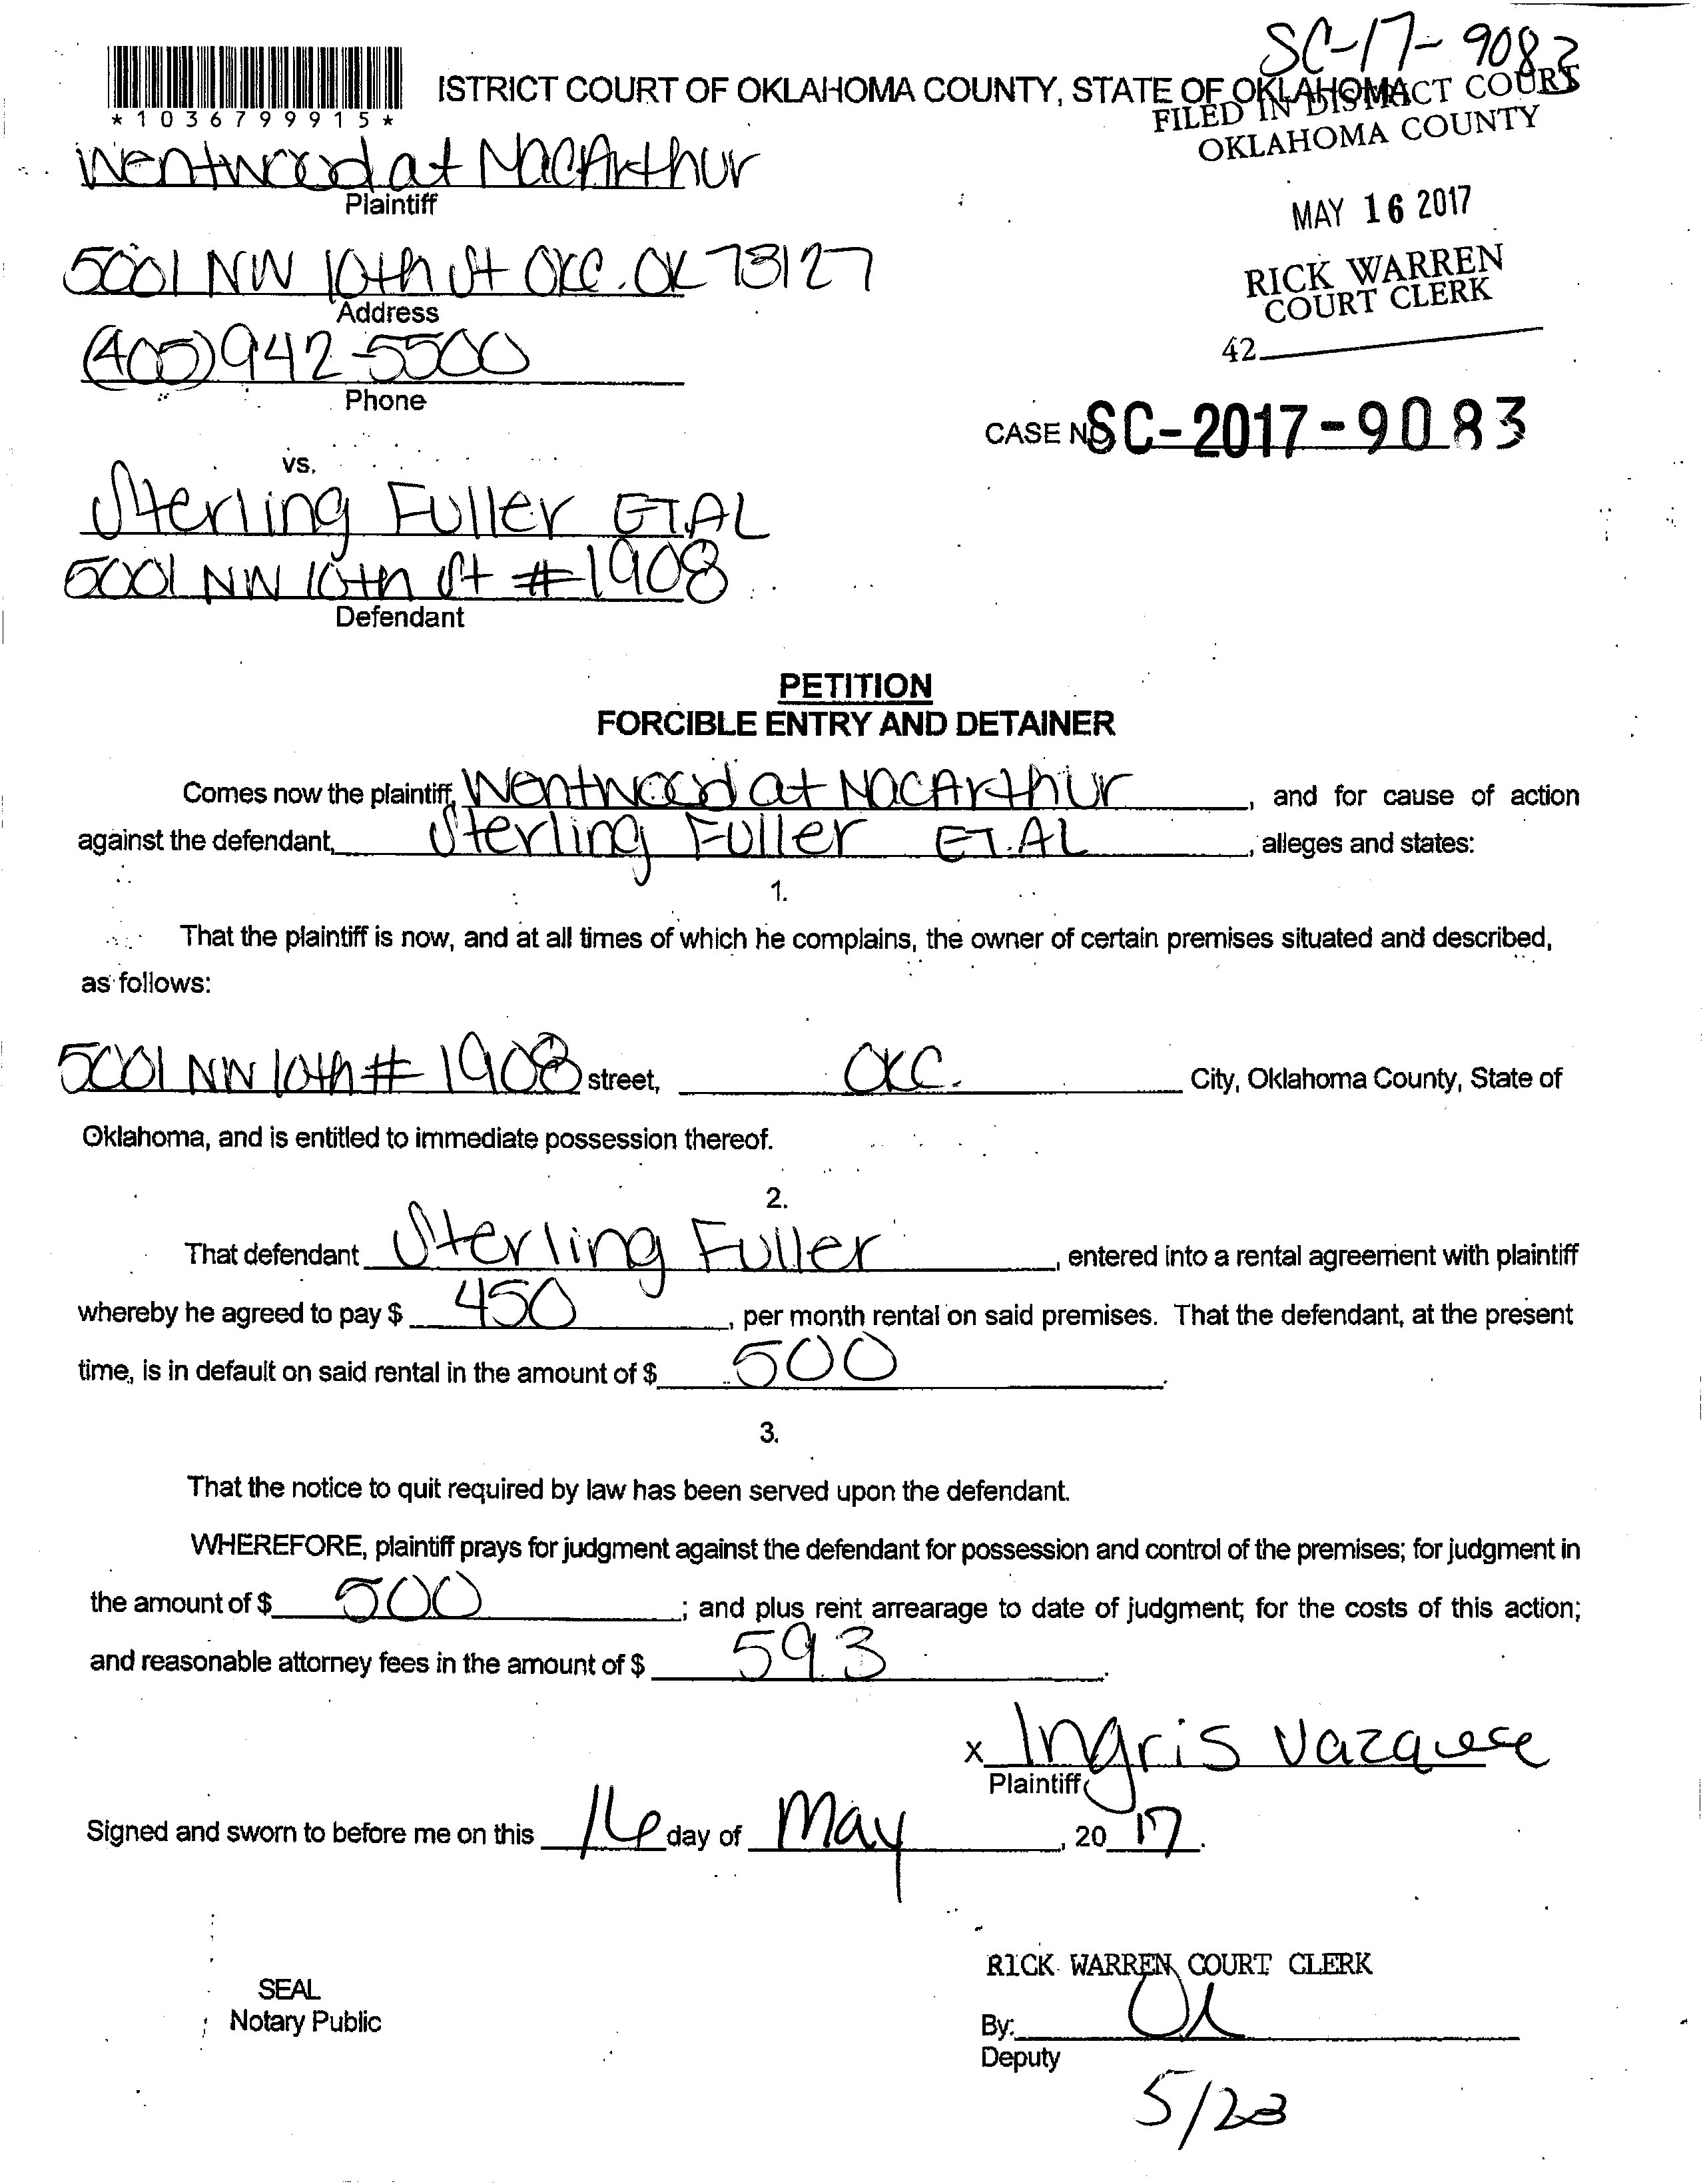 SC-17-9083
ISTRICT COURT OF OKLAHOMA COUNTY, STATE OF OKLAHOMA
*1036799915*
FILED IN DISTRICT COURT
OKLAHOMA COUNTY
Wentwood at MacArthur
Plaintiff
MAY 16 2017
5001 NW 10th St OKC. OK 73127
Address
RICK WARREN
COURT CLERK
(405) 942-5500
Phone
42
CASE NO SC-2017-9083
vs.
Sterling Fuller ET.AL
5001 NW 10th St #1908
Defendant
PETITION
FORCIBLE ENTRY AND DETAINER
Comes now the plaintiff, Wentwood at MacArthur, and for cause of action
against the defendant, Sterling Fuller ET.AL, alleges and states:
1.
That the plaintiff is now, and at all times of which he complains, the owner of certain premises situated and described,
as follows:
5001 NW 10th # 1908 street, OKC. City, Oklahoma County, State of
Oklahoma, and is entitled to immediate possession thereof.
2.
That defendant Sterling Fuller, entered into a rental agreement with plaintiff
whereby he agreed to pay $ 450, per month rental on said premises. That the defendant, at the present
time, is in default on said rental in the amount of $ 500.
3.
That the notice to quit required by law has been served upon the defendant.
WHEREFORE, plaintiff prays for judgment against the defendant for possession and control of the premises; for judgment in
the amount of $ 500; and plus rent arrearage to date of judgment; for the costs of this action;
and reasonable attorney fees in the amount of $ 593.
x Ingris Vazquese
Plaintiff
Signed and sworn to before me on this 16 day of May, 20 17.
RICK WARREN COURT CLERK
SEAL
Notary Public
By:
Deputy
5/23